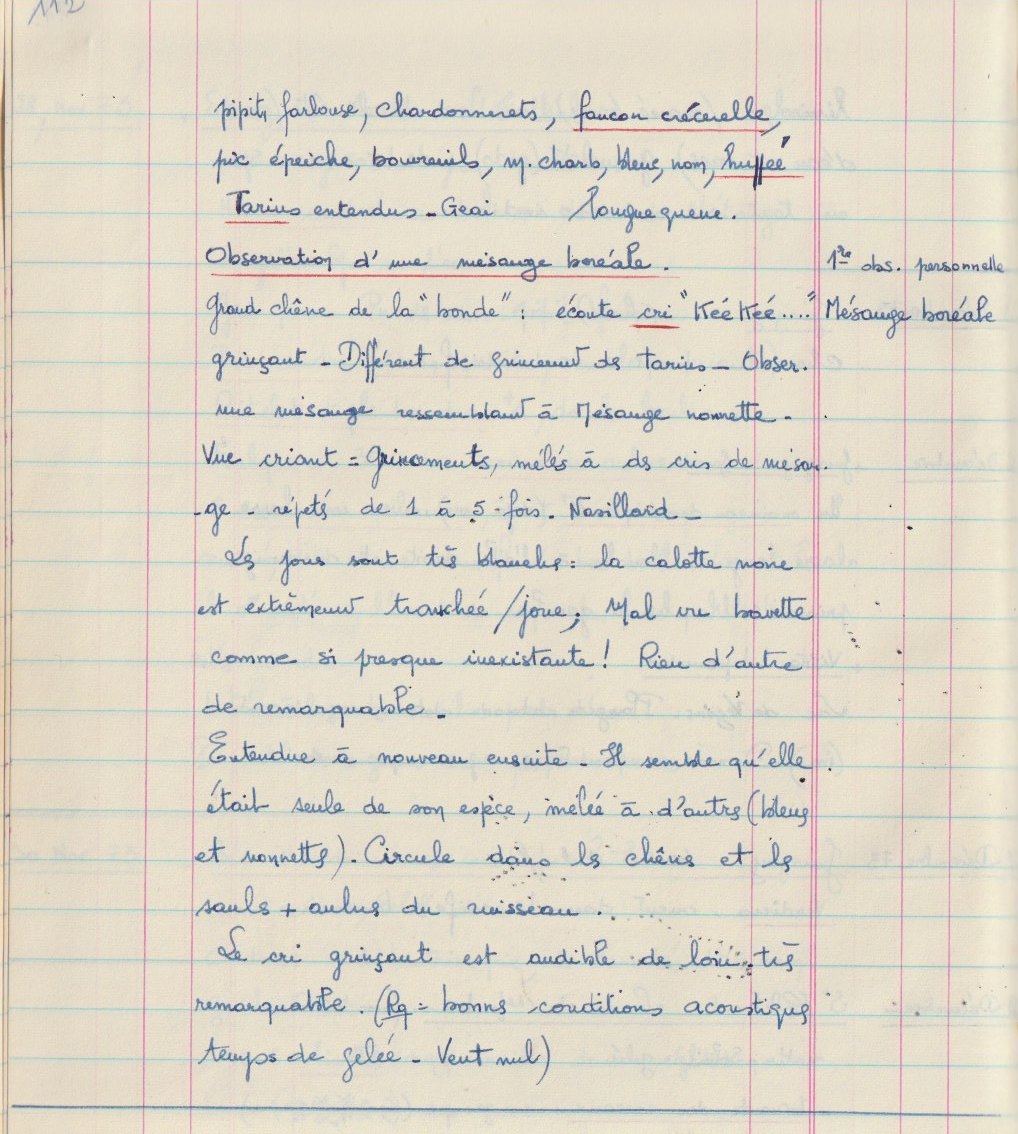 112
pipits farlouse, chardonnerets, faucon crécerelle,
pic épeiche, bouvreuils, m. charb, bleue, non, huppée
Tarins entendus - Geai longue queue.
Observation d'une mésange boréale.
1re obs. personnelle
Grand chêne de la "bonde" : écoute cri "Kéé Kéé...."
Mésange boréale
grinçant - Différent de grincemt ds tarins - Obser.
une mésange ressemblant à Mésange nonnette -
Vue criant = Grincements, mêlés à ds cris de mésan.
-ge - répetés de 1 à 5 fois. Nasillard -
Les joues sont très blanches : la calotte noire
est extrèmemt tranchée /joue; Mal vu bavette
comme si presque inexistante ! Rien d'autre
de remarquable -
Entendue à nouveau ensuite - Il semble qu'elle
était seule de son espèce, mêlée à d'autres (bleues
et nonnettes). Circule dans les chênes et les
saules + aulnes du ruisseau.
Le cri grinçant est audible de loin - très
remarquable. (Rq = bonnes conditions acoustiques
temps de gelée - Vent nul)